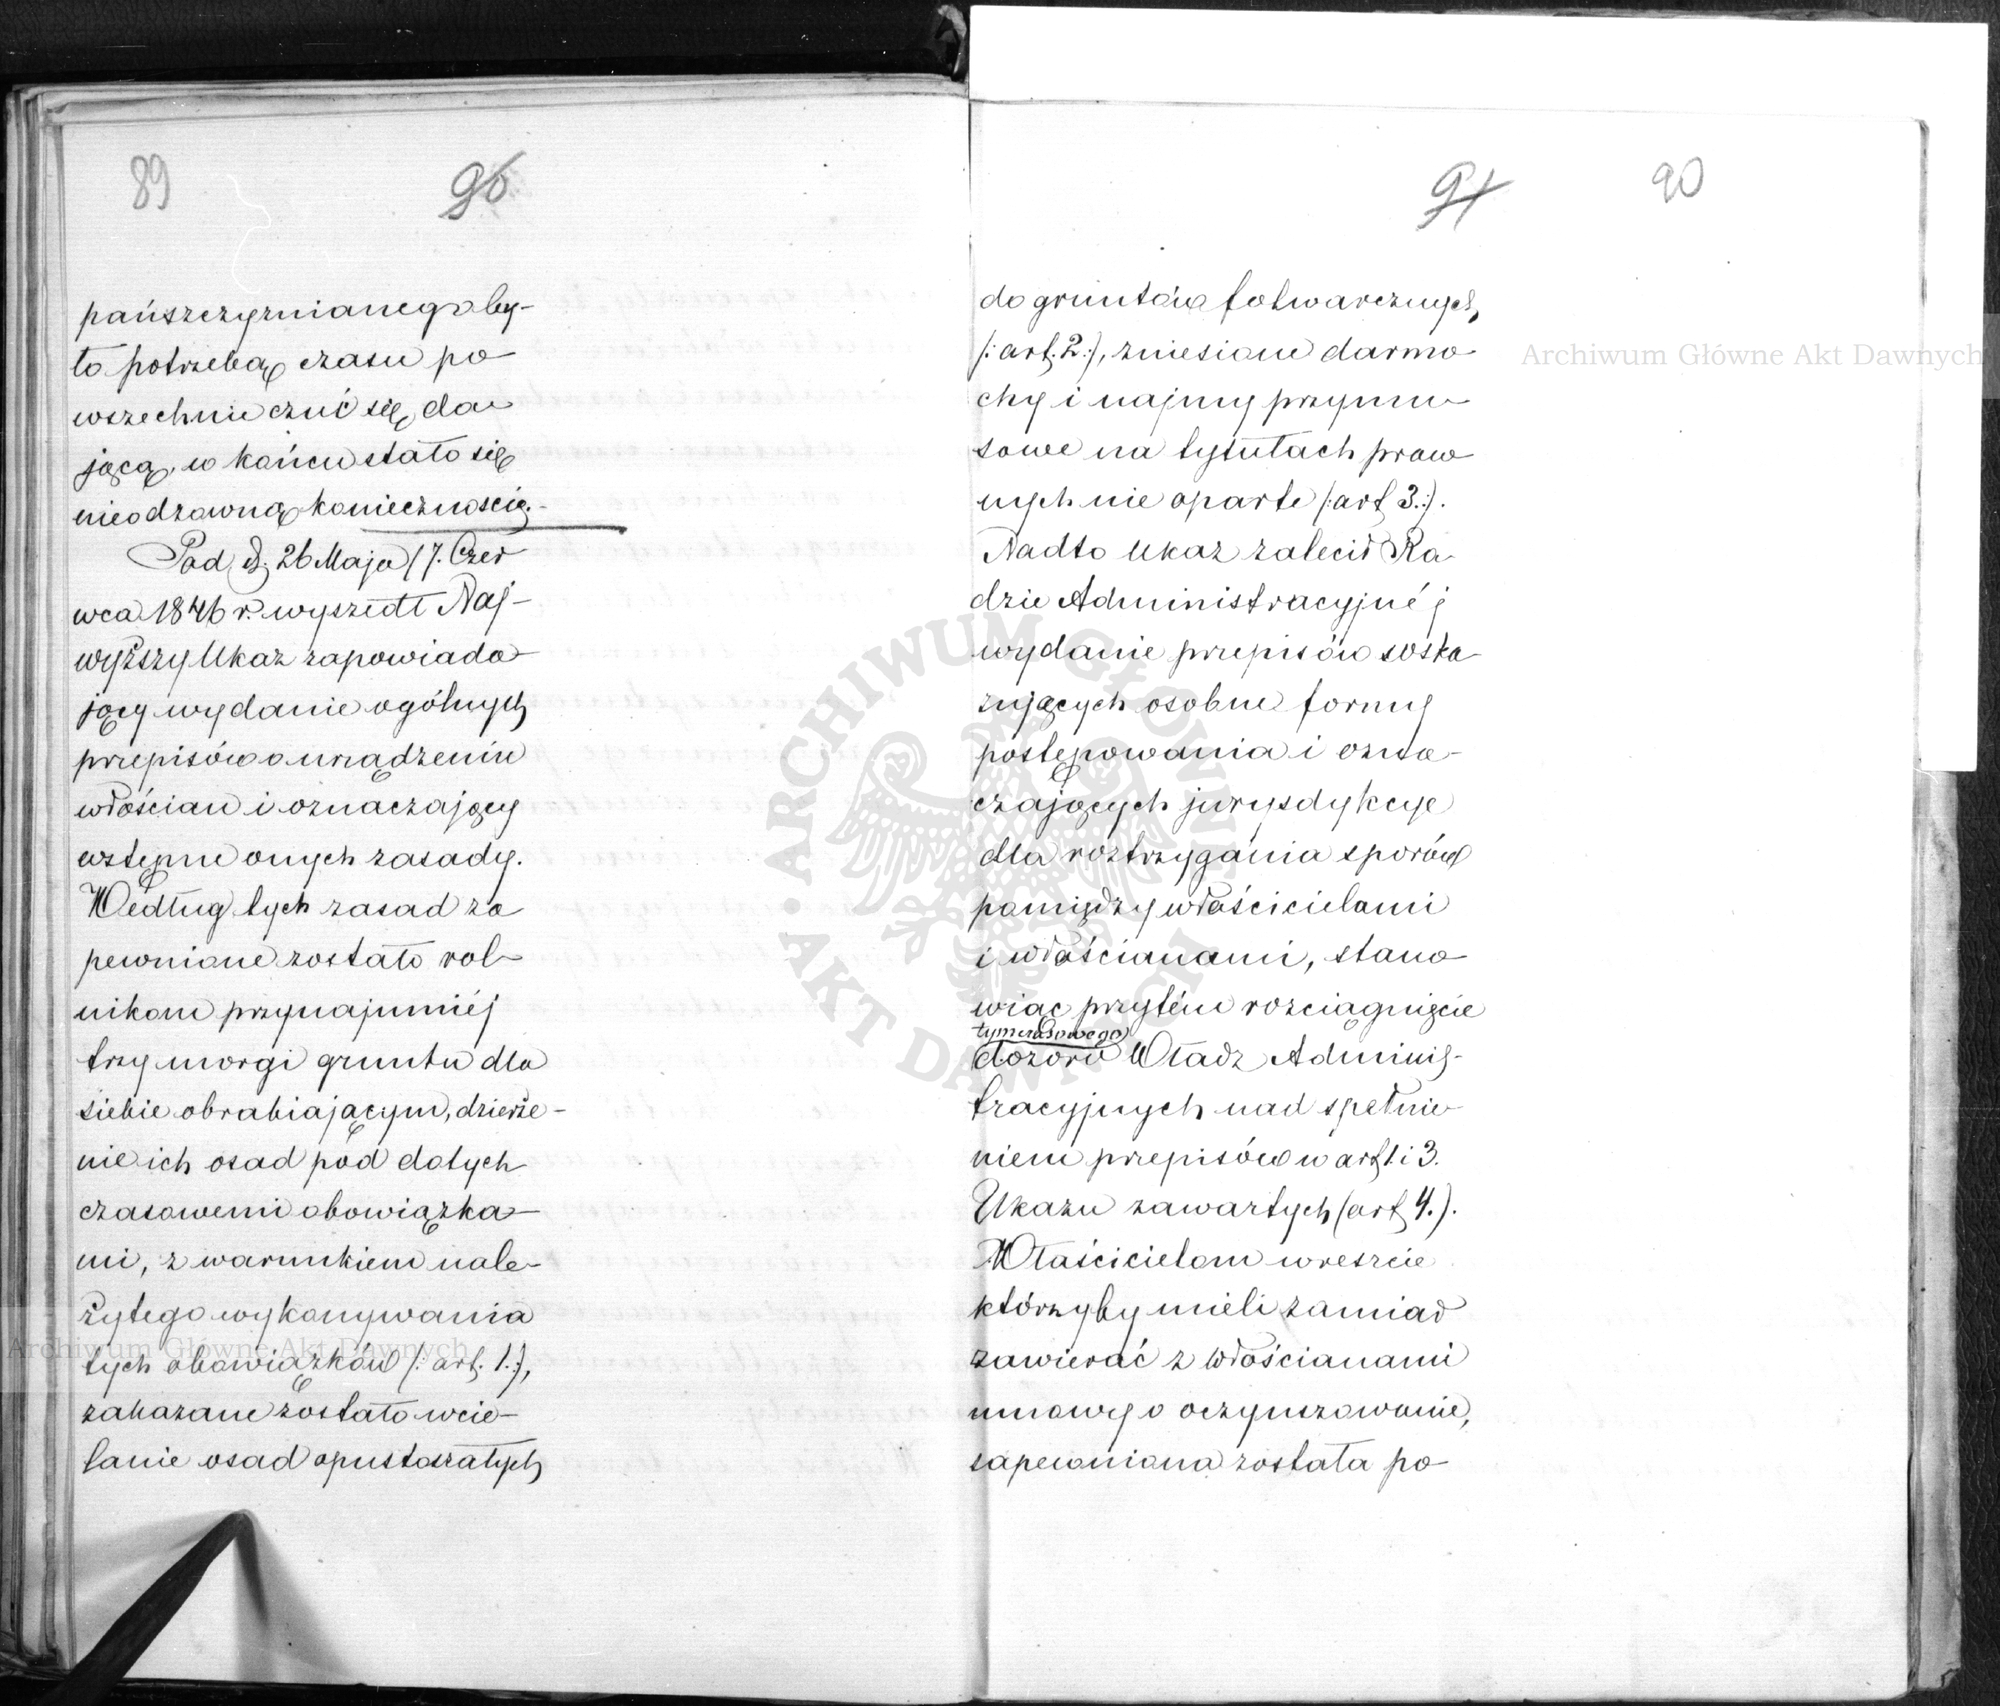 89
90
pańszczyznianego by-
ło potrzebą czasu po
wszechnie czuć się da
jącą, w końcu stało się
nieodzowną koniecznością.
Pod d. 26 Maja/7. Czer
wca 1846 r. wyszedł Naj-
wyższy Ukaz zapowiada
jący wydanie ogólnych
przepisów o urządzeniu
włościan i oznaczający
wstępne onych zasady.
Według tych zasad za
pewnione zostało rol-
nikom przynajmniéj
trzy morgi gruntu dla
siebie obrabiającym, dzierże-
nie ich osad pod dotych
czasowemi obowiązka-
mi, z warunkiem nale-
żytego wykonywania
tych obowiązków (: art. 1.:),
zakazane zostało wcie-
lanie osad opustoszałych
91
90
do gruntów folwarcznych,
(: art. 2.:), zniesione darmo
chy i najmy przymu-
sowe na tytułach praw
nych nie oparte (: art 3.:).
Nadto Ukaz zalecił Ra
dzie Administracyjnéj
wydanie przepisów wska
zujących osobne formy
postępowania i ozna-
czających jurysdykcye
dla roztrzygania sporów
pomiędzy właścicielami
i włościanami, stano
wiąc przytém rozciągnięcie
tymczasowego
dozoru Władz Adminis-
tracyjnych nad spełnie
niem przepisów w art 1. i 3.
Ukazu zawartych (art 4.).
Właścicielom wreszcie
którzyby mieli zamiar
zawierać z włościanami
umowy o oczynszowanie,
zapewniona została po
Archiwum Główne Akt Dawnych
Archiwum Główne Akt Dawnych
ARCHIWUM GŁÓWNE AKT DAWNYCH